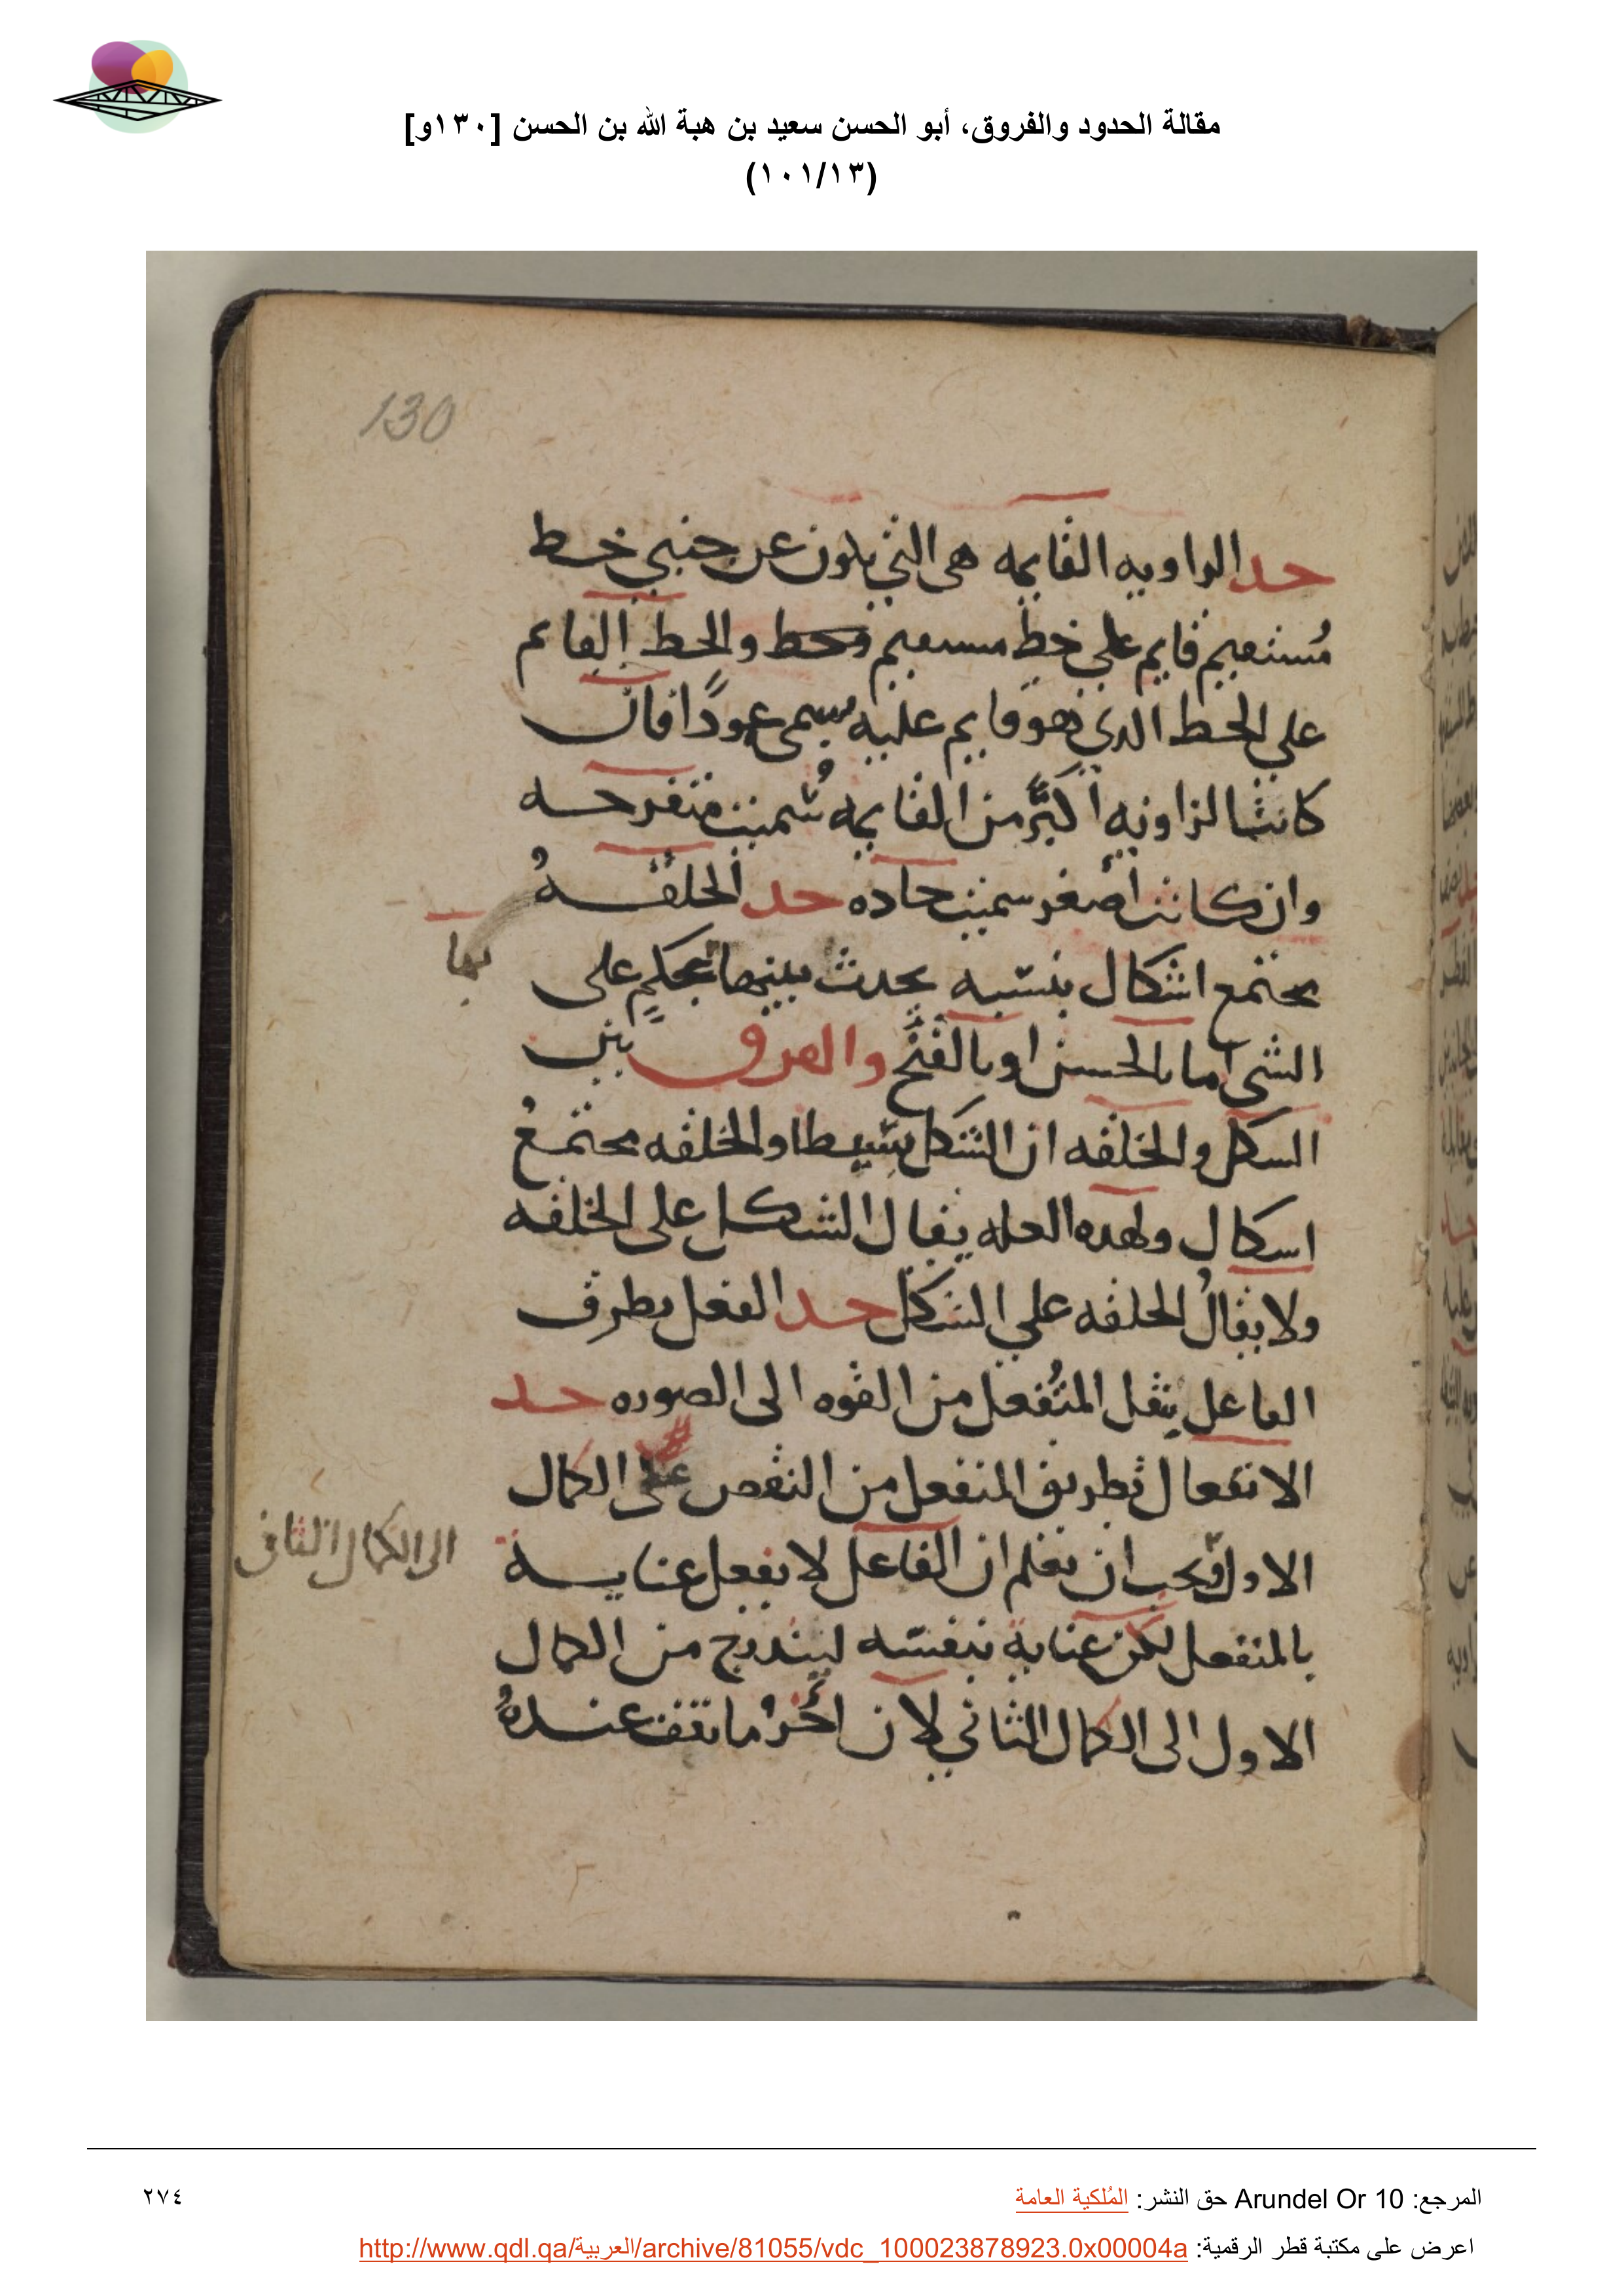 مقالة الحدود والفروق، أبو الحسن سعيد بن هبة الله بن الحسن [١٣٠و]
(١٠١/١٣)
130
حد الزاويه القايمه هى التي يكون عن جنبي خط
مُستقيم قايم على خط مستقيم وخط والخط القايم
على الخط الذي هو قايم عليه يسمى عمودًا فان
كانت الزاويه اكبر من القايمه سُميت منفرجه
وان كانت اصغر سميت حاده حد الخلقه
يجتمع اشكال بنسبه يحدث بينهما يحكم على
بها
الشى اما بالحسن او بالقبح والفرق بين
الشكل والخلقه ان الشكل بسيط والخلقه مجتمعُ
اشكال ولهذه العله يقال الشكل على الخلقه
ولا يقالُ الخلقه علي الشكل حد الفعل بطرق
الفاعل ينقل المنُفعل من القوه الى الصوره حد
الانفعال تطريق المنفعل من النقص على الكمال
الاول فيجب ان تعلم ان الفاعل لا يفعل عنايه
الى الكمال الثانى
بالمنفعل لكن عناية بنفسه ليتدرج من الكمال
الاول الى الكمال الثاني لان اخر ما تقف عندهُ
المرجع: Arundel Or 10 حق النشر: المُلكية العامة
٢٧٤
اعرض على مكتبة قطر الرقمية: http://www.qdl.qa/العربية/archive/81055/vdc_100023878923.0x00004a